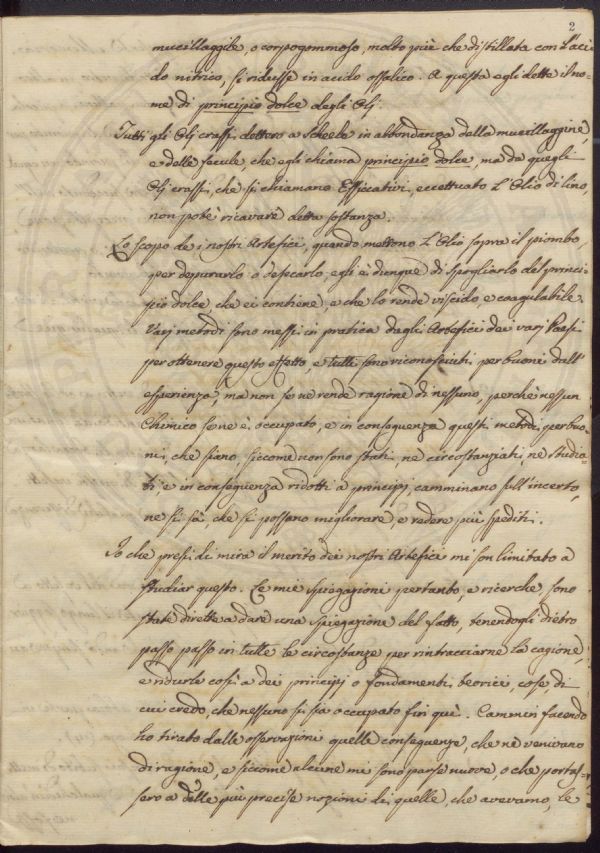 2
mucillaggile, o corpogommoso, molto più che distillata con l'aci
do nitrico, si ridusse in acido ossalico. A questa egli dette il no-
me di principio dolce degli Olj.
Tutti gli Olj crassi dettero a Scheele in abbondanza della mucillaggine,
e delle fecule, che egli chiama principio dolce, ma da quegli
Olj crassi, che si chiamano Essiccativi, eccettuato l'Olio di lino,
non potè ricavare detta sostanza.
Lo scopo de i nostri Artefici, quando mettono l'Olio sopra il piombo,
per depurarlo o defecarlo, egli è dunque di spogliarlo del princi-
pio dolce, che ei contiene, e che lo rende viscido, e coagulabile.
Varj metodi sono messi in pratica dagli Artefici dei varj Paesi
per ottenere questo effetto e tutti sono riconosciuti per buoni dall'
esperienza, ma non se ne rende ragione di nessuno, perchè nessun
Chimico se ne è occupato, e in conseguenza questi metodi per buo-
ni, che siano, siccome non sono stati, ne circostanziati, ne studia-
ti, e in conseguenza ridotti a principj, camminano sull'incerto,
ne si sà, che si possano migliorare, e rendere più spediti.
Io che presi di mira il merito dei nostri Artefici mi son limitato a
studiar questo. Le mie spiegazioni pertanto, e ricerche, sono
state dirette a dare una spiegazione del fatto, tenendogli dietro
passo passo in tutte le circostanze per rintracciarne la cagione,
e ridurla così a dei principj o fondamenti teorici, cose di
cui credo, che nessuno si sia occupato fin quì. Cammin facendo
ho tirato dalle osservazioni quelle conseguenze, che ne venivano
di ragione, e siccome alcune mi sono parse nuove, o che portas-
sero a delle più precise nozioni di quelle, che avevamo, le